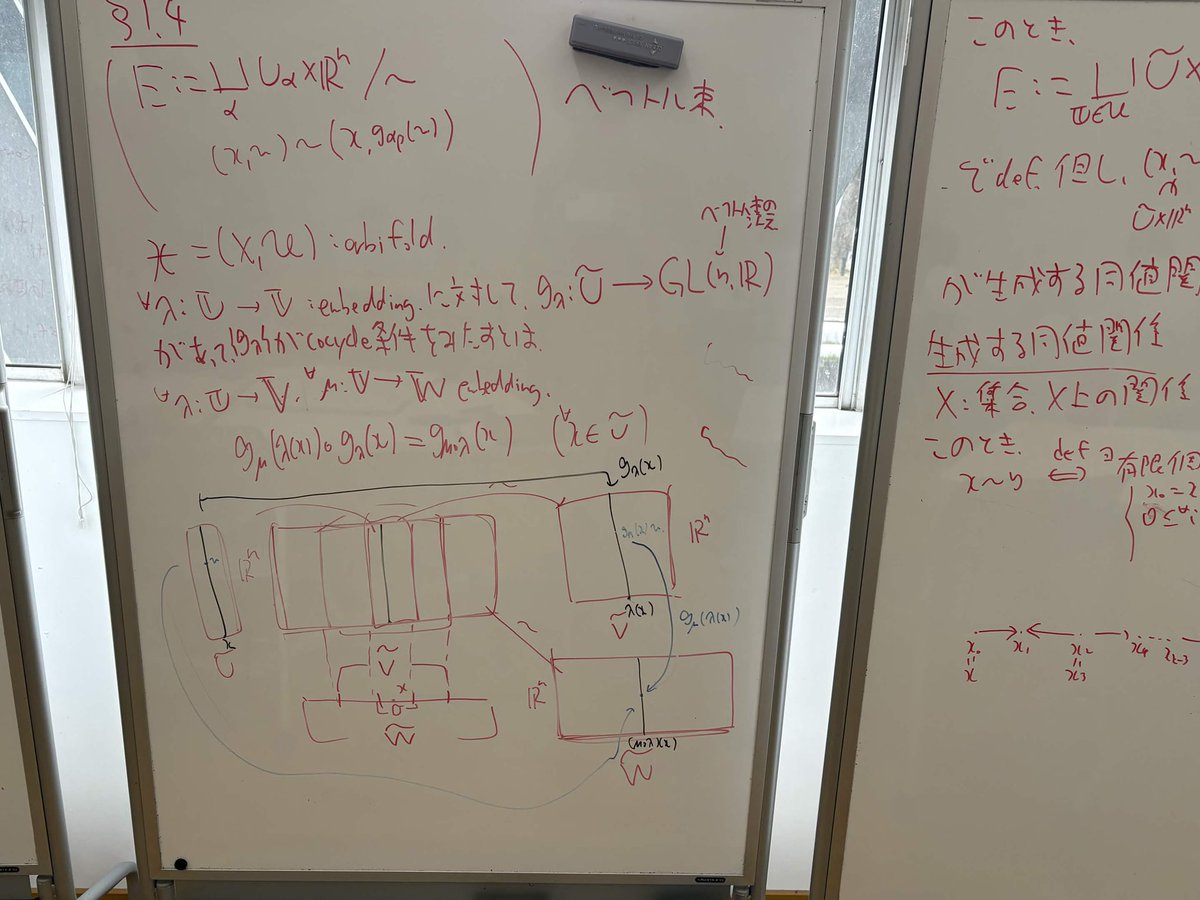 §1.4
E := ⊔_α U_α × ℝⁿ / ~
(x, v) ~ (x, g_αβ(v))
ベクトル束.
𝒳 = (X, 𝒰) : orbifold.
ベクトル束の
∀λ: 𝕌 → 𝕍 : embedding. に対して, g_λ: Ũ → GL(n, ℝ)
があって, {g_λ}がcocycle条件をみたすとは
∀λ: 𝕌 → 𝕍, ∀μ: 𝕍 → 𝕎 embedding.
g_μ(λ(x)) ∘ g_λ(x) = g_μ∘λ(x) (∀x ∈ Ũ)
~
g_λ(x)
v
ℝⁿ
x
Ũ
g_λ(x)v.
ℝⁿ
λ(x)
Ṽ
g_μ(λ(x))
~
Ṽ
x
Ũ
W̃
ℝⁿ
(μ∘λ)(x)
W̃
このとき,
E := ⊔_{𝕌∈𝒰} Ũ ×
でdef. 但し, (x,
Ũ×ℝⁿ
が生成する同値関
生成する同値関係
X: 集合, X上の関係
このとき,
x ~ y ⇔def ∃有限個
x₀ = x
0 ≤ ∀i
x₀ → x₁ ← x₂ → x₄
x
x₃